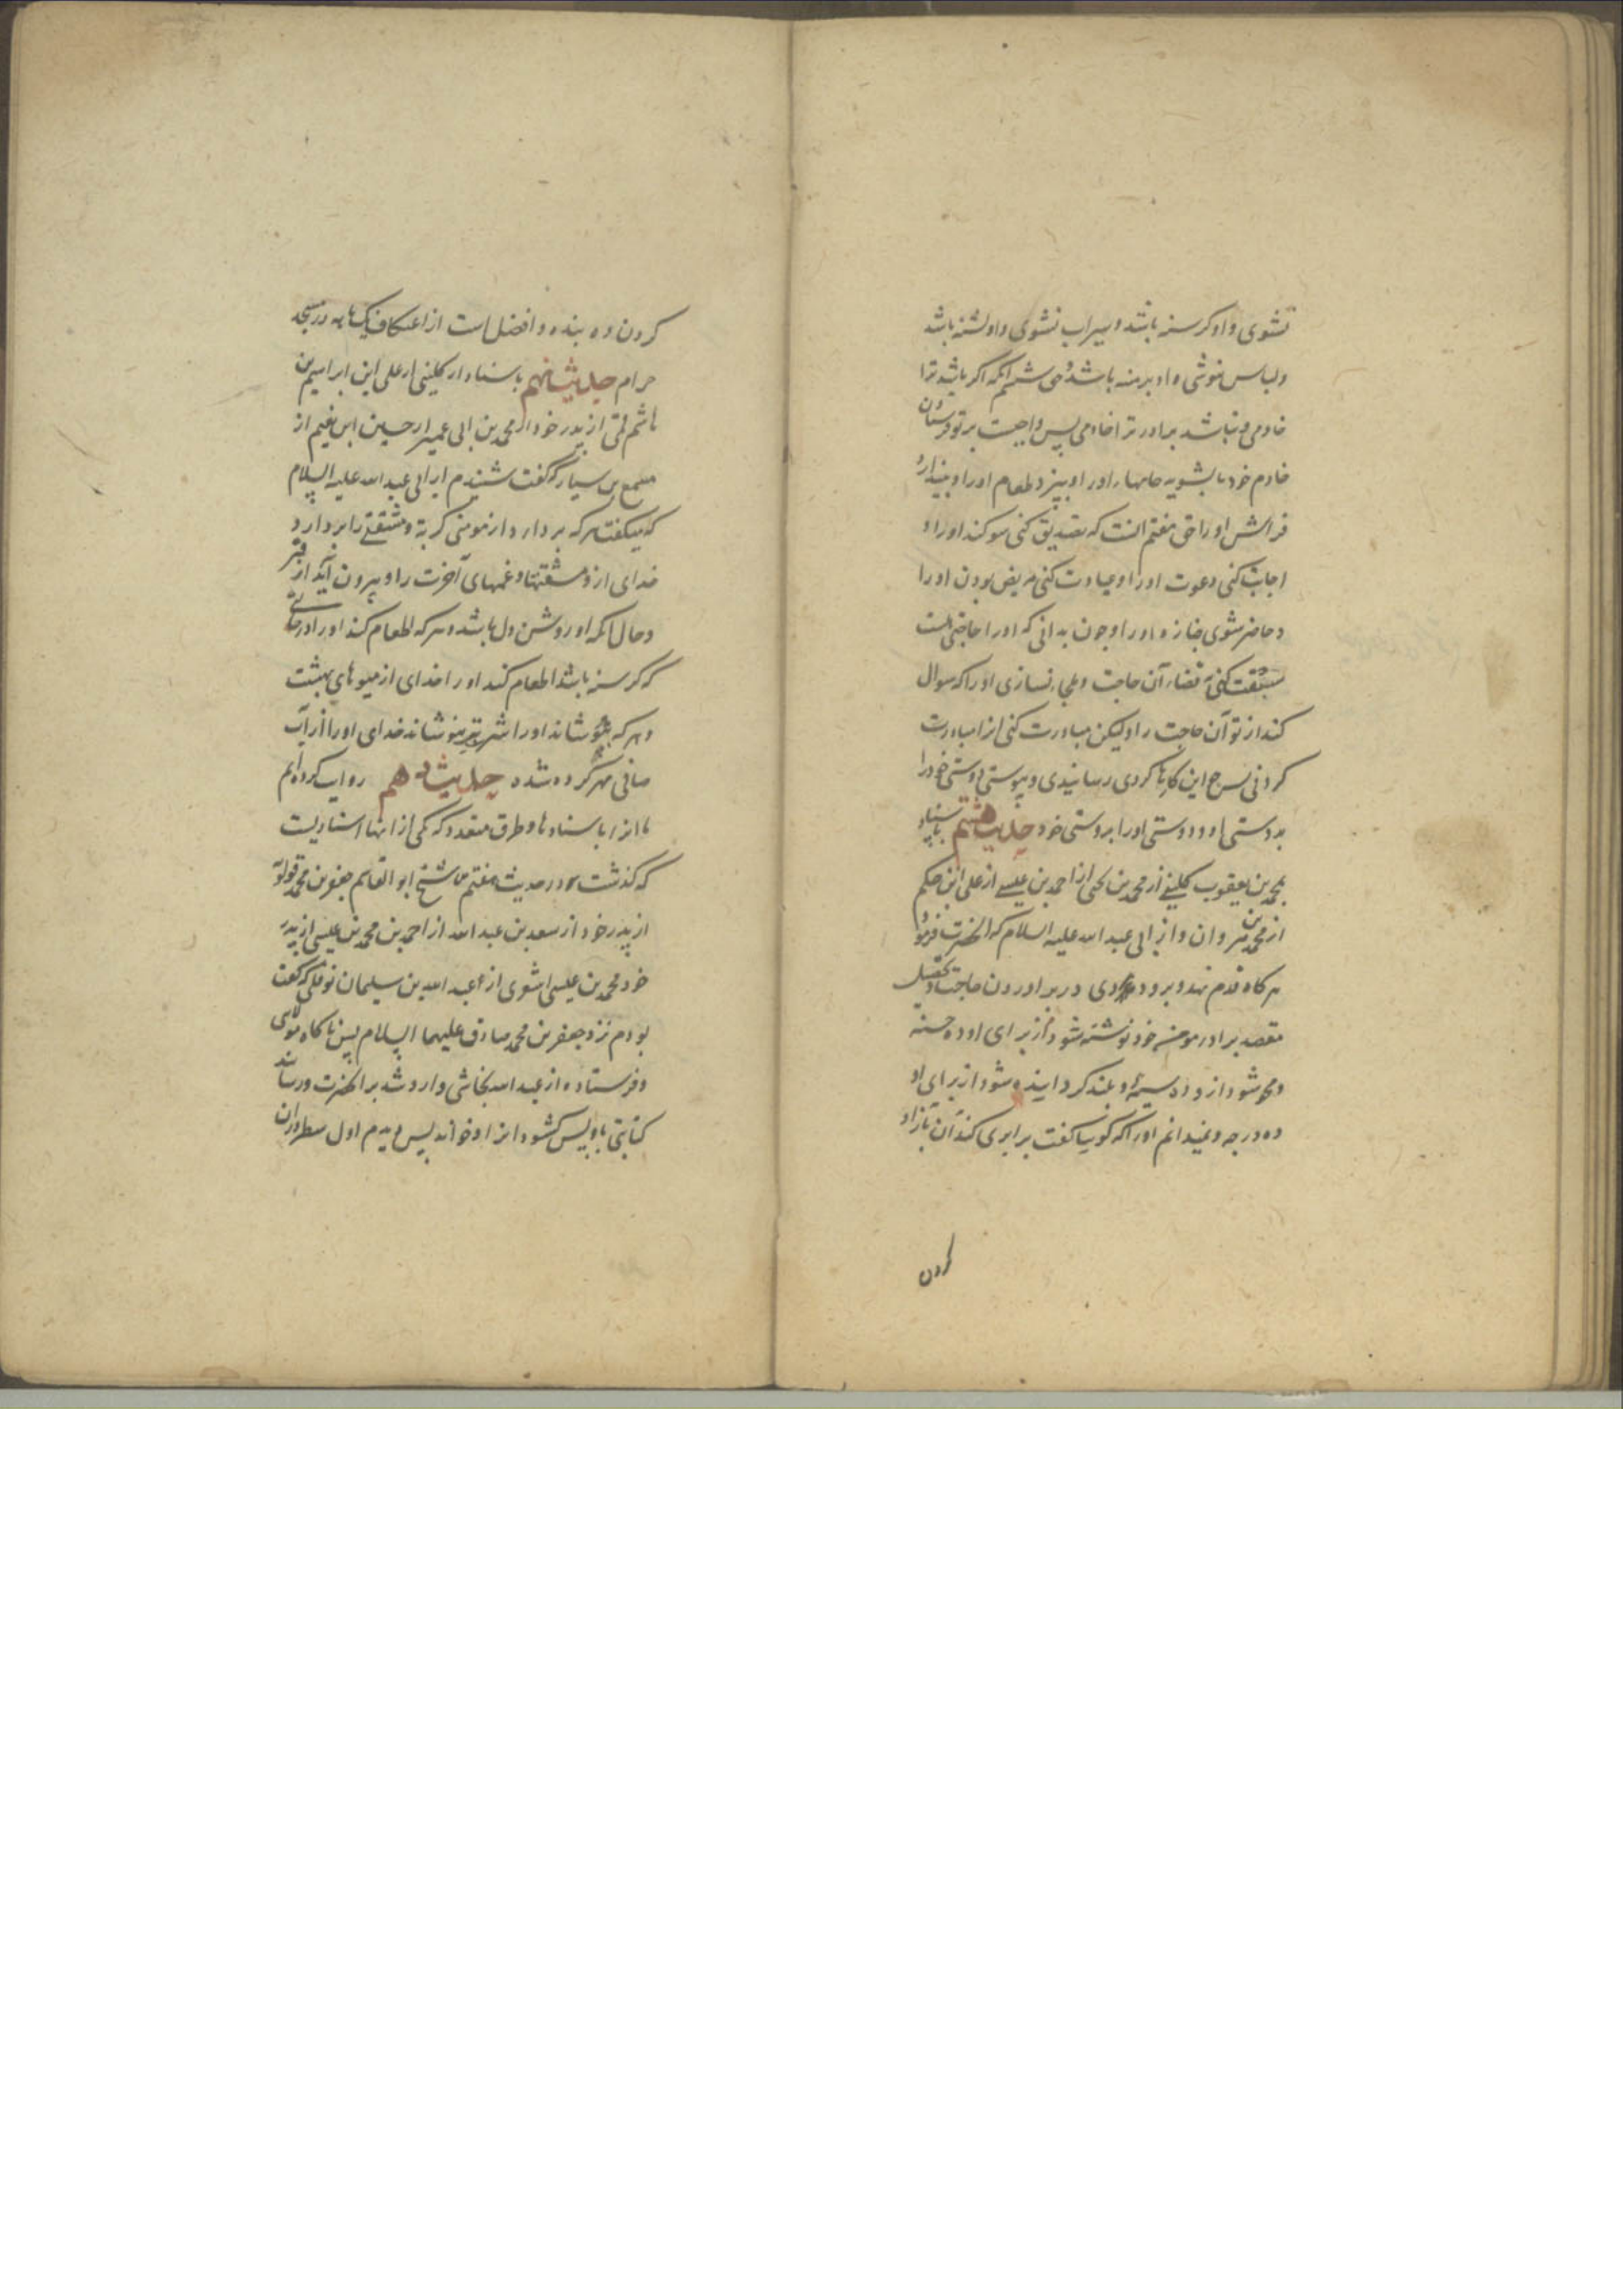 نشوی و او کرسنه باشد و سیراب نشوی و او تشنه باشد
و لباس نپوشی و او برهنه باشد و حق ششم انکه اکر باشد ترا
خادمی و نباشد برادر ترا خادمی پس واجبست بر تو فرستادن
خادم خود تا بشوید جامهاء او را و بپزد طعام او را و بیندازد
فراش او را حق هفتم انست که تصدیق کنی سوکند او را و
اجابت کنی دعوت او را و عیادت کنی مریض بودن او را
و حاضر شوی جنازه او را و چون بدانی که او را حاجتی هست
سبقت کنی بقضاء آن حاجت و ملجاء نسازی او را که سوال
کند از تو آن حاجت را و لیکن مبادرت کنی انرا مبادرت
کردنی پس هرکاه این کارها کردی رسانیدی و پیوستی دوستی خود را
بدوستی او و دوستی او را بدوستی خود حدیث هشتم باسناد
محمد بن یعقوب کلینی از محمد بن یحیی از احمد بن عیسی از علی ابن حکم
از محمد بن مروان و از ابی عبد الله علیه السلام که انحضرت فرمود
هر کاه قدم نهد و برود مردی در براوردن حاجت و تحصیل
مقصد برادر مومنه خود نوشته شود از برای او ده حسنه
و محو شود از و ده سیئه و بلند کردانیده شود از برای او
ده درجه و نمیدانم او را که کوییا کفت برابری کند آن بازاد
کردن
کردن ده بنده و افضل است از اعتکاف یک ماهه در مسجد
حرام حدیث نهم باسناد از کلینی از علی ابن ابراهیم بن
هاشم قمی از پدر خود از محمد بن ابی عمیر از حسین ابن نعیم از
مسمع بن سیار که کفت شنیدم از ابی عبد الله علیه السلام
که میکفت هر که بردارد از مومنی کربة و مشقتی را بردارد
خدای از و مشقتها و غمهای آخرت را و بیرون آید از قبر
و حال انکه او روشن دل باشد و هر که اطعام کند او را در حالتی
که کرسنه باشد اطعام کند او را خدای از میوهای بهشت
و هر که بنوشاند او را شربتی بنوشاند خدای او را از آب
صافی مهر کرده شده حدیث دهم روایت کرده ایم
ما انرا باسنادها و طرق متعدد که یکی از انها اسنادیست
که کذشت در حدیث هفتم از شیخ ابو القاسم جعفر بن محمد قولویه
از پدر خود از سعد بن عبد الله از احمد بن محمد بن عیسی از پدر
خود محمد بن عیسی اشعری از عبد الله بن سلیمان نوفلی که کفت
بودم نزد جعفر بن محمد صادق علیهما السلام پس ناکاه مولای
و فرستاده از عبد الله نجاشی وارد شد بر انحضرت و رساند
کتابتی باو پس کشود انرا و خواند پس دیدم اول سطر در ان